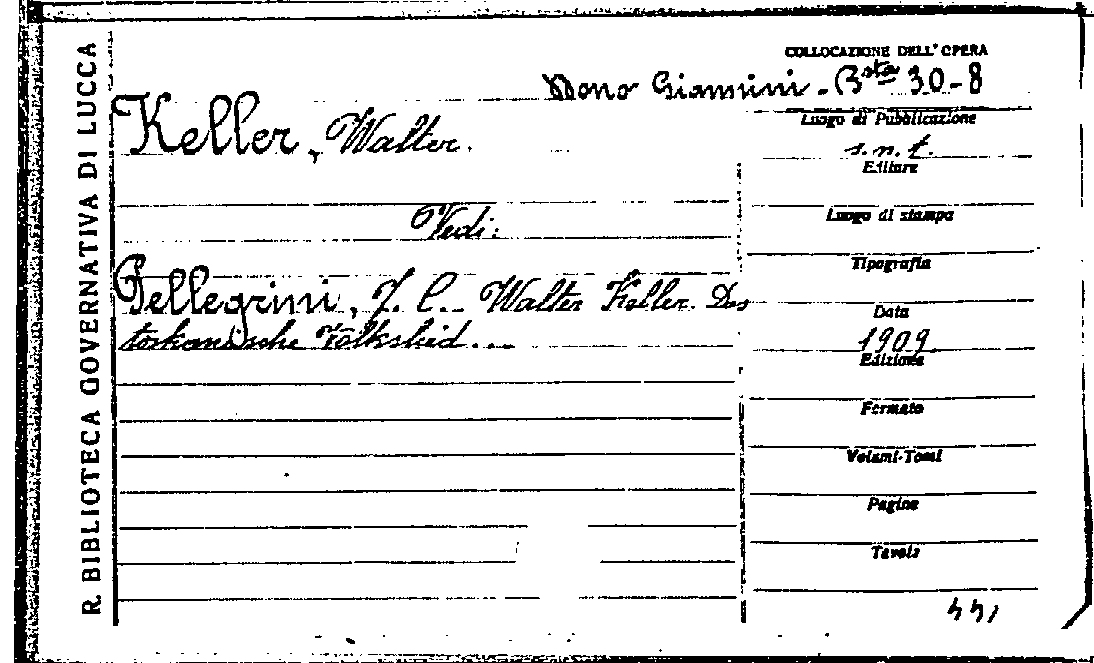 R. BIBLIOTECA GOVERNATIVA DI LUCCA
COLLOCAZIONE DELL'OPERA
Dono Giannini - Bsta 30-8
Keller, Walter.
Luogo di Pubblicazione
s.n.t.
Editore
Vedi:
Luogo di stampa
Tipografia
Pellegrini, F. C. - Walter Keller. Das
Data
toskanische Volkslied...
1909
Edizione
Formato
Volumi-Tomi
Pagine
Tavole